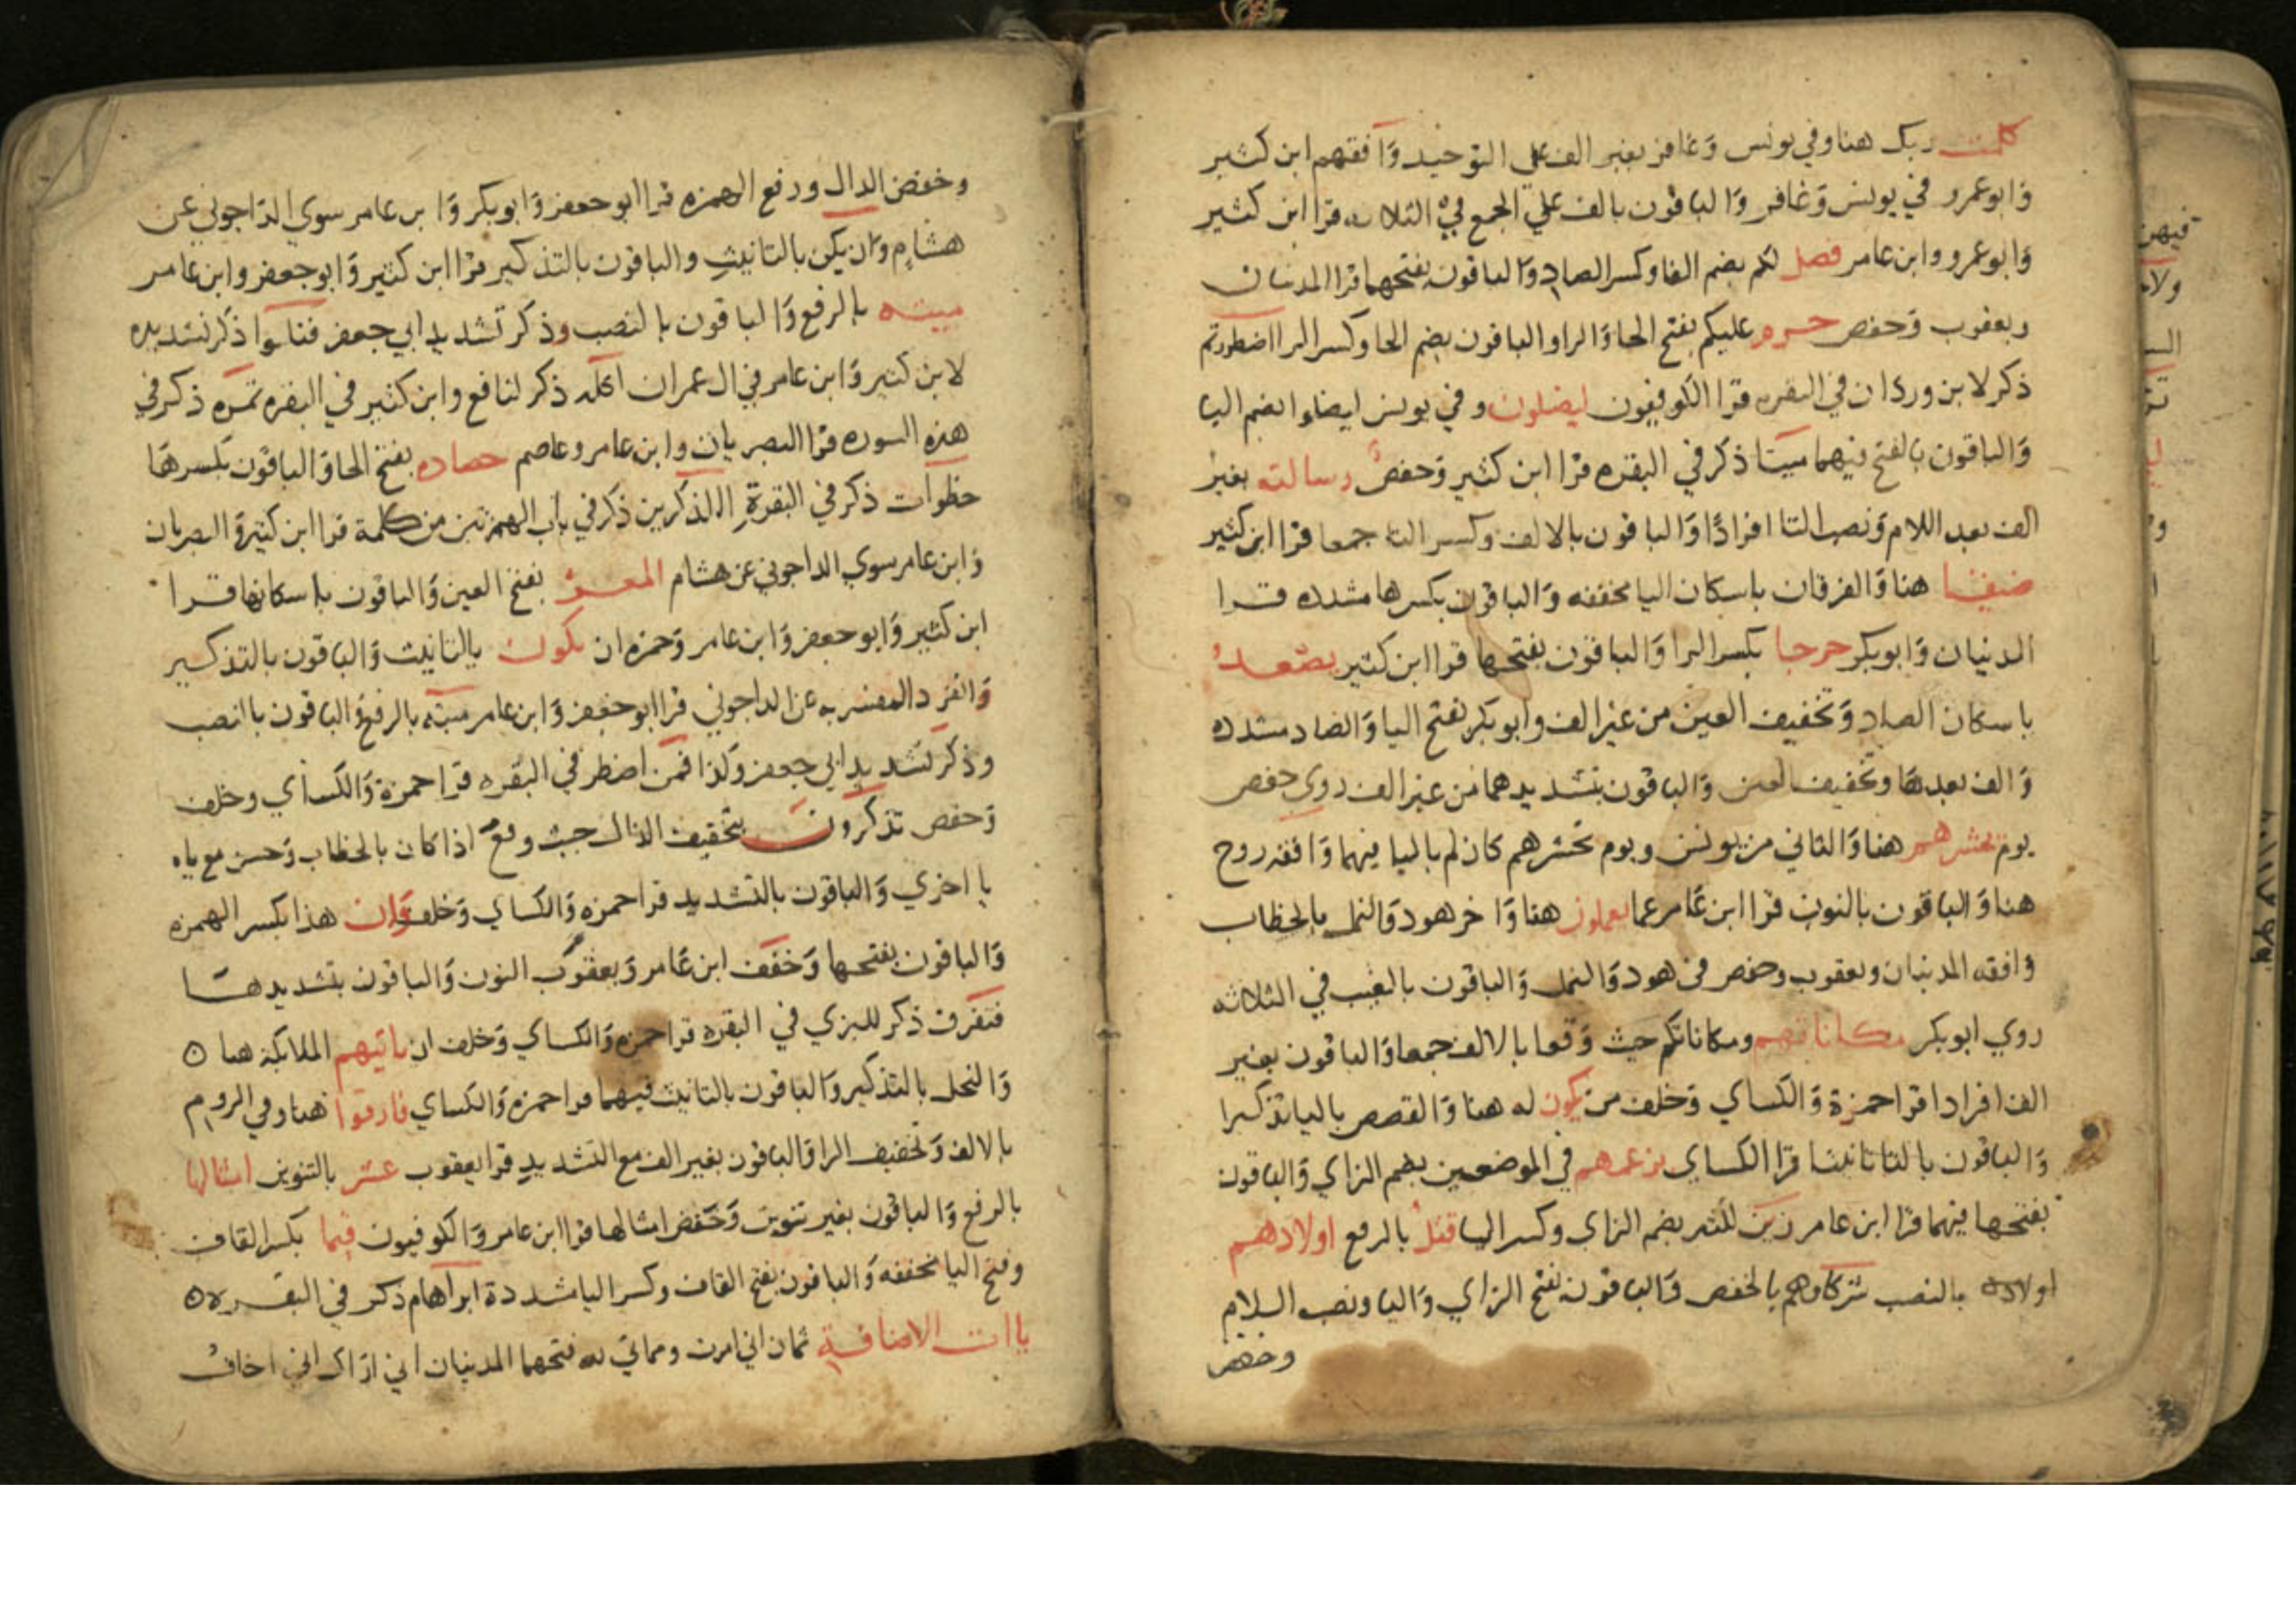 كلمت ربك هنا وفي يونس وغافر بغير الف علي التوحيد وافقهم ابن كثير
وابو عمرو في يونس وغافر والباقون بالف علي الجمع في الثلاثه قرا ابن كثير
وابو عمرو وابن عامر فصل لكم بضم الفا وكسر الصاد والباقون بفتحهما قرا المدنيان
ويعقوب وحفص حرم عليكم بفتح الحا والرا والباقون بضم الحا وكسر الرا اضطررتم
ذكر لابن وردان في البقره قرا الكوفيون ليضلون وفي يونس ليضلوا بضم اليا
والباقون بالفتح فيهما ميتا ذكر في البقره قرا ابن كثير وحفص رسالته بغير
الف بعد اللام ونصب التا افرادا والباقون بالالف وكسر التا جمعا قرا ابن كثير
ضيقا هنا والفرقان باسكان اليا مخففه والباقون بكسرها مشدده قرا
المدنيان وابو بكر حرجا بكسر الرا والباقون بفتحها قرا ابن كثير يصعد
باسكان الصاد وتخفيف العين من غير الف وابو بكر بفتح اليا والصاد مشدده
والف بعدها وتخفيف العين والباقون بتشديدهما من غير الف روي حفص
يوم نحشرهم هنا والثاني من يونس ويوم نحشرهم كان لم باليا فيهما وافقه روح
هنا والباقون بالنون قرا ابن عامر عما يعملون هنا واخر هود والنمل بالخطاب
وافقه المدنيان ويعقوب وحفص في هود والنمل والباقون بالغيب في الثلاثه
روي ابو بكر مكاناتهم ومكاناتكم حيث وقعا بالالف جمعا والباقون بغير
الف افرادا قرا حمزة والكساي وخلف من يكون له هنا والقصص باليا تذكيرا
والباقون بالتا تانيثا قرا الكساي بزعمهم في الموضعين بضم الزاي والباقون
بفتحها فيهما قرا ابن عامر زين لكثير بضم الزاي وكسر اليا قتل بالرفع اولادهم
اولاده بالنصب شركاوهم بالخفض والباقون بفتح الزاي واليا ونصب اللام
وخفض
وخفض الدال ورفع الهمزه قرا ابو جعفر وابو بكر وابن عامر سوي الداجوني عن
هشام وان يكن بالتانيث والباقون بالتذكير قرا ابن كثير وابو جعفر وابن عامر
ميته بالرفع والباقون بالنصب وذكر تشديد ابي جعفر قتلوا ذكر تشديده
لابن كثير وابن عامر في ال عمران اكله ذكر لنافع وابن كثير في البقره ثمره ذكر في
هذه السوره قرا البصريان وابن عامر وعاصم حصاده بفتح الحا والباقون بكسرها
خطوات ذكر في البقرة الذكرين ذكر في باب الهمزتين من كلمة قرا ابن كثير والبصريان
وابن عامر سوي الداجوني عن هشام المعز بفتح العين والباقون باسكانها قرا
ابن كثير وابو جعفر وابن عامر وحمزه ان يكون بالتانيث والباقون بالتذكير
وانفرد المفسر به عن الداجوني قرا ابو جعفر وابن عامر ميته بالرفع والباقون بالنصب
وذكر تشديد ابي جعفر وكذا فمن اضطر في البقره قرا حمزة والكساي وخلف
وحفص تذكرون بتخفيف الذال حيث وقع اذا كان بالخطاب وحسن مع ياه
يا اخري والباقون بالتشديد قرا حمزه والكساي وخلف وان هذا بكسر الهمزه
والباقون بفتحها وخفف ابن عامر ويعقوب النون والباقون بتشديدها
فتفرق ذكر للبزي في البقره قرا حمزه والكساي وخلف ان ياتيهم الملايكة هنا
والنحل بالتذكير والباقون بالتانيث فيهما قرا حمزه والكساي فارقوا هنا وفي الروم
بالالف وتخفيف الرا والباقون بغير الف مع التشديد قرا يعقوب عشر بالتنوين امثالها
بالرفع والباقون بغير تنوين وخفض امثالها قرا ابن عامر والكوفيون قيما بكسر القاف
وفتح اليا مخففه والباقون بفتح القاف وكسر اليا مشددة ابراهام ذكر في البقره
ياات الاضافة ثمان اني امرت ومماتي لله فتحهما المدنيان اني اراك اني اخاف